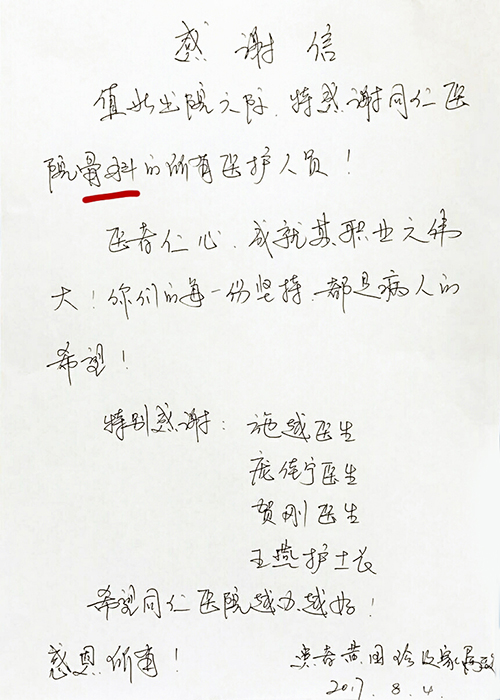 感谢信
值此出院之际，特感谢同仁医
院骨科的所有医护人员！
医者仁心，成就其职业之伟
大！你们的每一份坚持，都是病人的
希望！
特别感谢：施越医生
庞伟宁医生
贺刚医生
王燕护士长
希望同仁医院越办越好！
感恩所有！ 患者黄国珍及家属敬
2017.8.4.